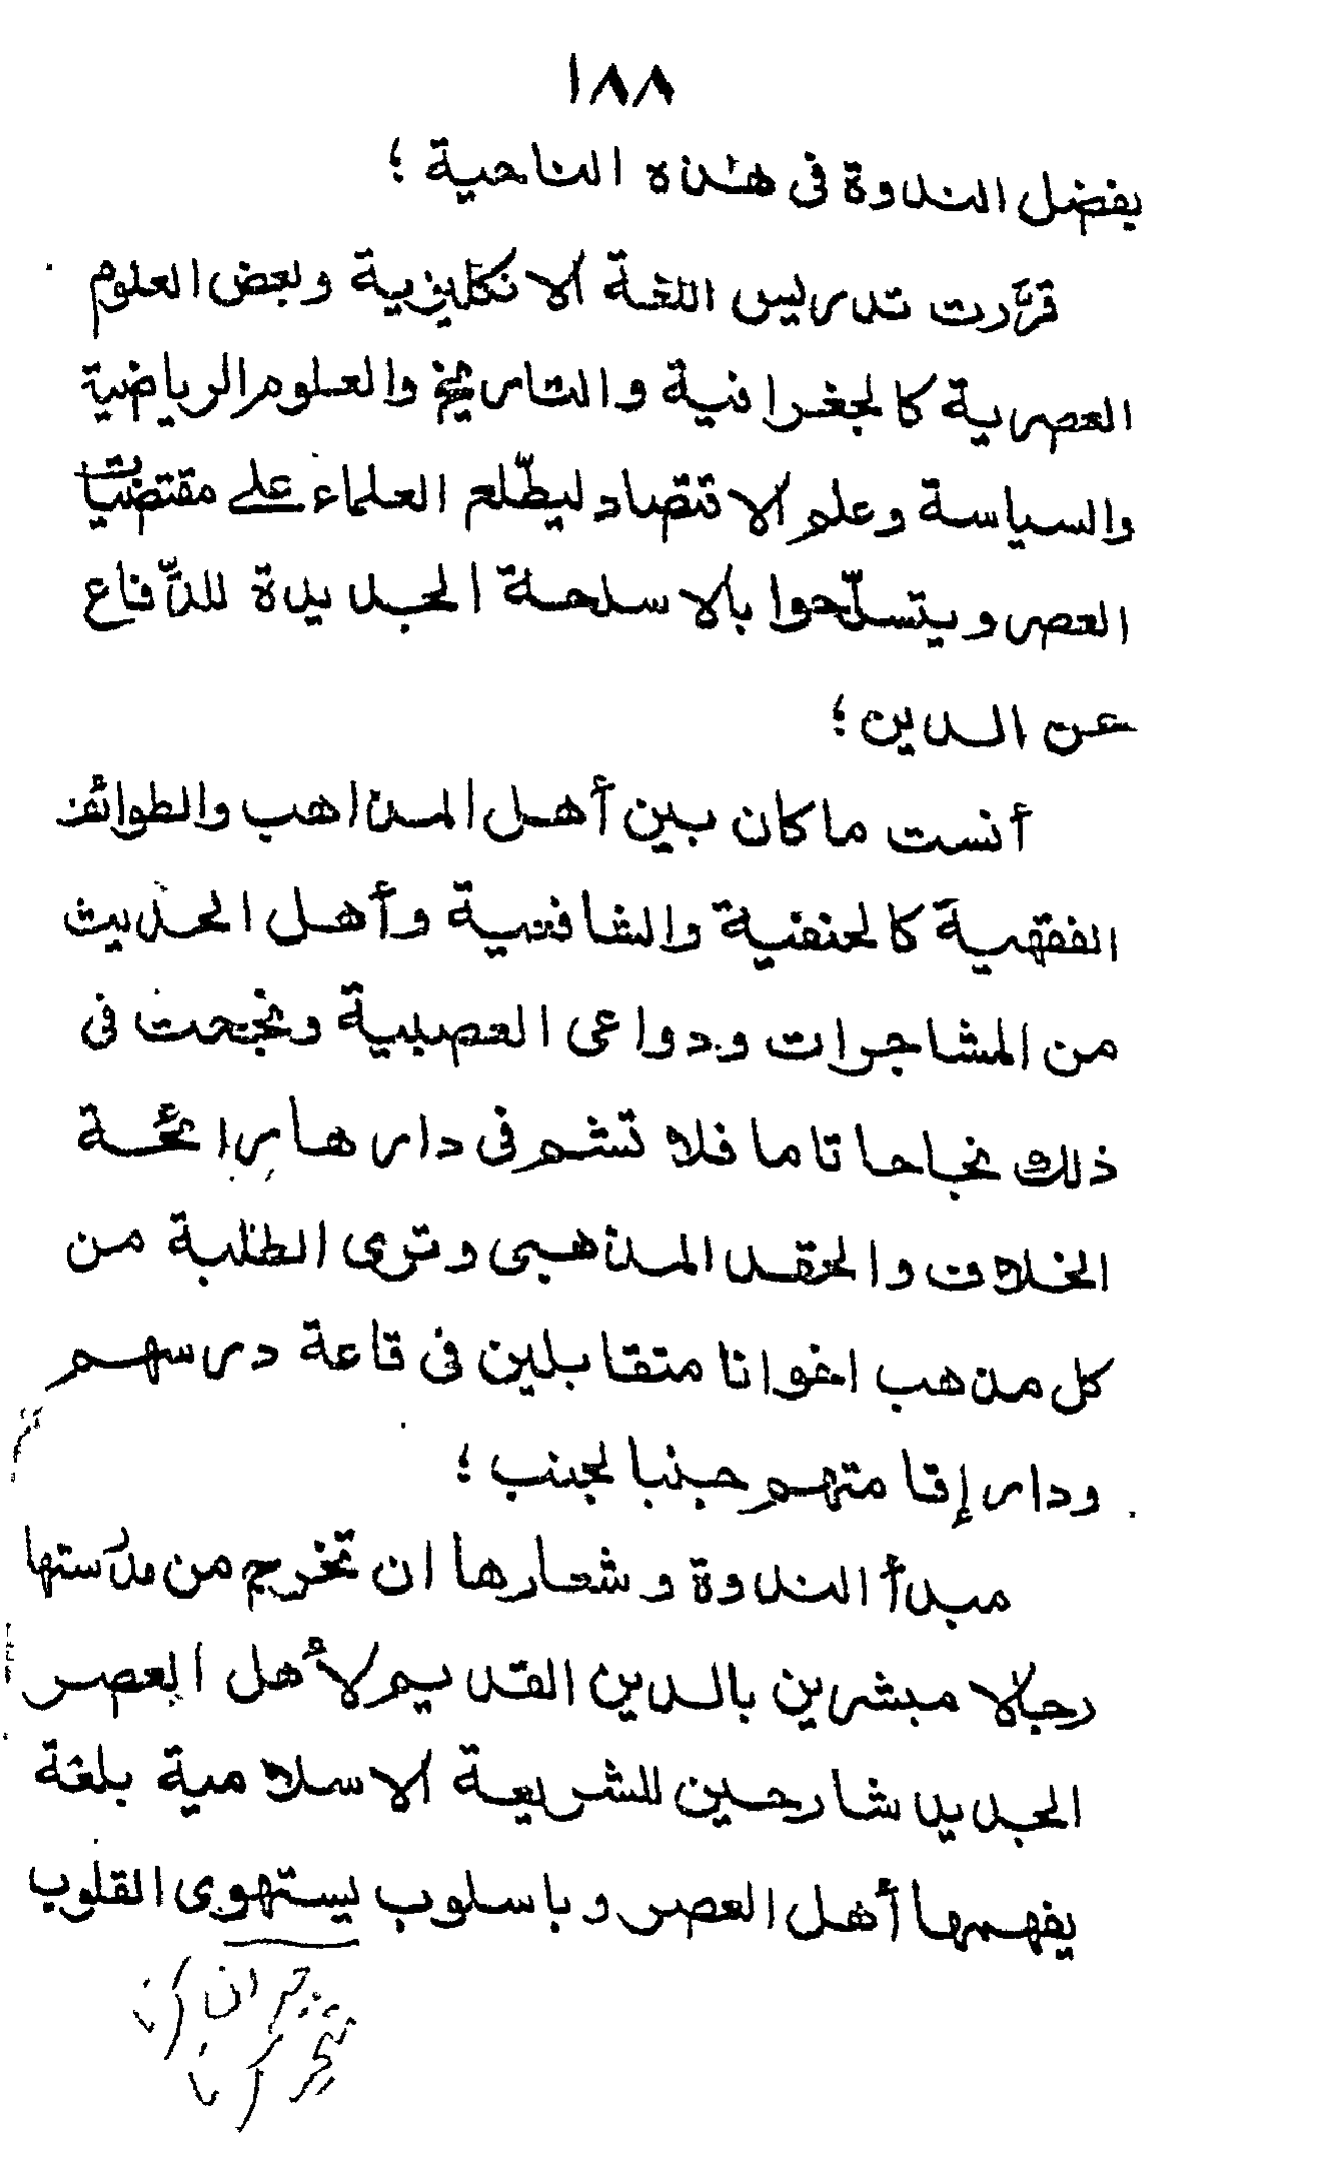 ١٨٨
بفضل الندوة فى هذه الناحية ؛
قرّرت تدريس اللغة الانكليزية وبعض العلوم
العصرية كالجغرافية والتاريخ والعلوم الرياضية
والسياسة وعلم الاقتصاد ليطّلع العلماء على مقتضيات
العصر ويتسلّحوا بالاسلحة الجديدة للدّفاع
عن الدين ؛
أنست ما كان بين أهل المذاهب والطوائف
الفقهية كالحنفية والشافعية وأهل الحديث
من المشاجرات ودواعى العصبية ونجحت فى
ذلك نجاحا تاما فلا تشم فى دارها رائحة
الخلاف والحقد المذهبى وترى الطلبة من
كل مذهب اخوانا متقابلين فى قاعة درسهم
ودار إقامتهم جنبا لجنب ؛
مبدأ الندوة وشعارها ان تخرج من مدرستها
رجالا مبشرين بالدين القديم لأهل العصر
الجديد شارحين للشريعة الاسلامية بلغة
يفهمها أهل العصر وباسلوب يستهوى القلوب